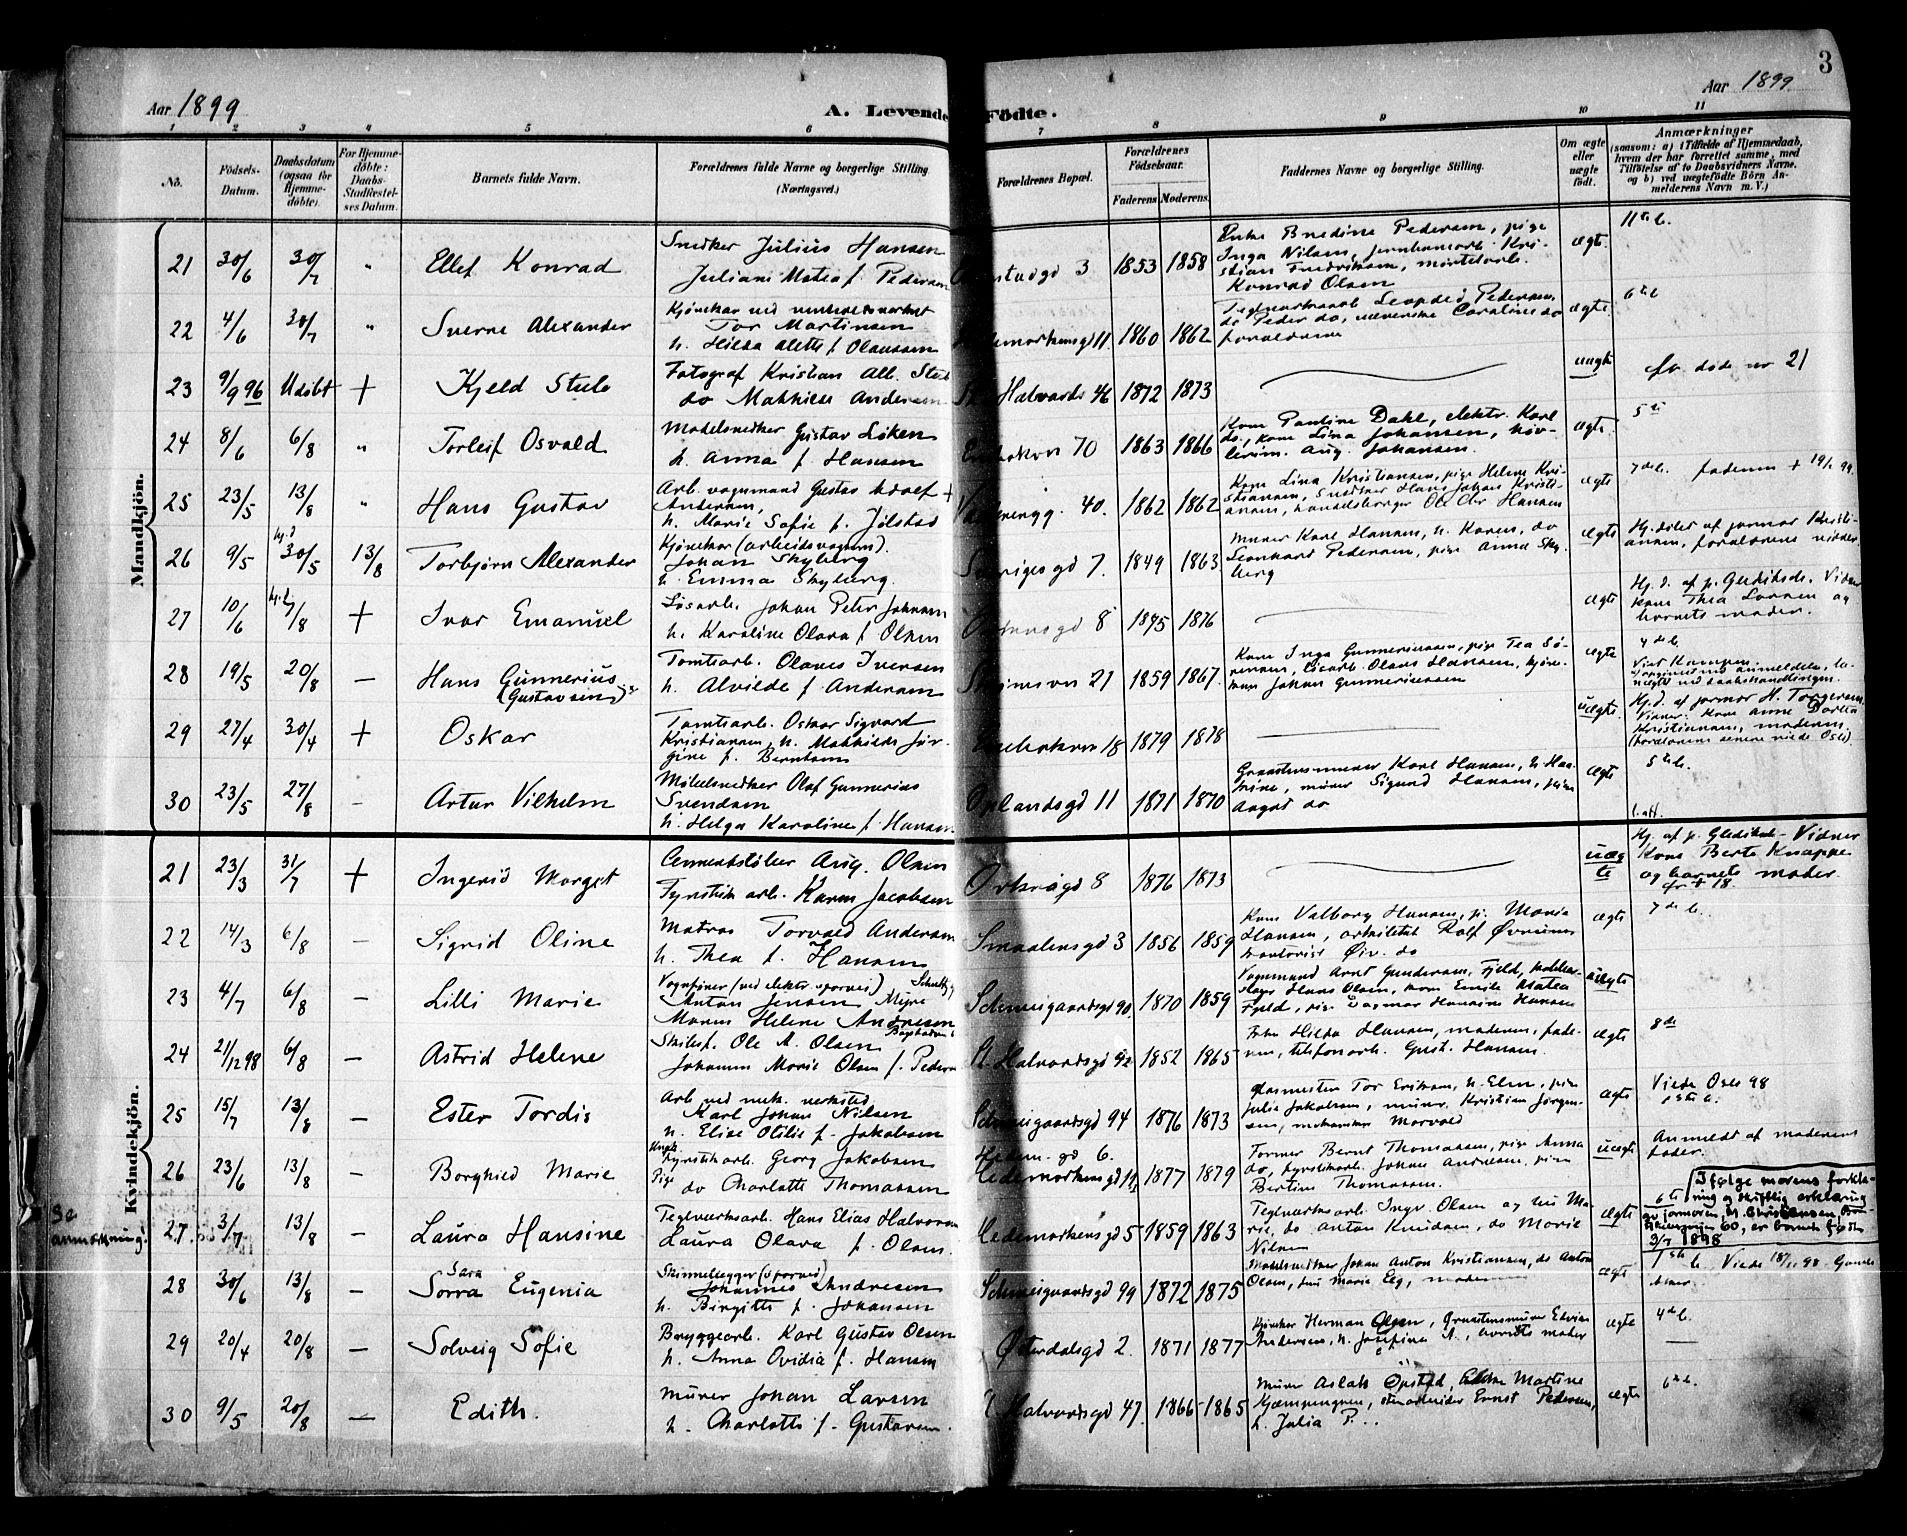 3
Aar 1899
A. Levende Fødte.
Aar 1899
1 2 3 4 5 6 7 8 9 10 11
No.
Fødsels-Datum.
Daabsdatum (ogsaa for Hjemme-døbte).
For Hjemme-døbte: Daabs-Stadfæstel-ses Datum.
Barnets fulde Navn.
Forældrenes fulde Navne og borgerlige Stilling (Næringsvei.)
Forældrenes Bopæl.
Forældrenes Fødselsaar.
Faderens. Moderens.
Faddernes Navne og borgerlige Stilling.
Om ægte eller uægte født.
Anmærkninger
(saasom: a) i Tilfælde af Hjemmedaab, hvem der har forrettet samme, med Tilføielse af to Daabsvidners Navne, og b) ved uægtefødte Børn An-melderens Navn m. V.)
Mandkjön.
21 30/6 30/7 " Ellef Konrad
Snedker Julius Hansen
Juliane Matea f. Pedersen
3 1853 1858
Enke Bredine Pedersen, pige
Inga Nilsen, jernbanearb. Kri-
stian Fredriksen,
Konrad Olsen
ægte
22 4/6 30/7 " Sverre Alexander
Tor Martinsen
h. Hilda Alette f. Olaussen
11. 1860 1862
Teglverksarb. Leopold Pedersen,
do Peder do, væverske Caroline do
forældrene
ægte
6te b.
23 9/9 96 Udøbt + Kjeld Stub
Fotograf Kristian Alb. Stub
do Mathilde Andersen
St. Halvards 46 1872 1873
uægte
fr. døde nr 21
24 8/6 6/8 " Torleif Osvald
Modelsnedker Gustav Løken
h. Anna f. Hansen
70 1863 1866
Kone Pauline Dahl, elektr. Karl
do, kone Lina Johansen, høv-
Aug. Johansen.
ægte
5te
25 23/5 13/8 " Hans Gustav
Arb. vognmand Gustav Adolf +
Andersen,
h. Marie Sofie f. Jølstad
40. 1862 1862
Kone Lina Kristiansen, pige Helene Kri-
stiansen, Snedker Hans Johan Kristi-
ansen, Ole Chr Hansen
ægte
7de b. faderen + 19/1 99.
26 9/5 hj.d 30/5 13/8 Torbjørn Alexander
Kjørekar (arbeidsvogn).
Johan Skyberg
h. Emma Skyberg.
Sverigesgd 7. 1849 1863
Murer Karl Hansen, h. Karen, do
Leonhart Pedersen, pige Anna Sky-
berg
ægte
Hj.døbt af jormor Kristi-
ansen, forældrene vidner
27 10/6 hj.d. 7/8 + Ivar Emanuel
Løsarb. Johan Peter Johnsen
h. Karoline Olava f. Olsen
8 1875 1876
ægte
Hj. d. af p. Gleditsch. Vidner
kone Thea Larsen og
barnets moder.
28 19/5 20/8 — Hans Gunnerius
(Gustavsen)
Tomtearb. Olaves Iversen
h. Alvilde f Andersen
21 1859 1867.
Kone Inga Gunneriussen, pige Tea Sö-
rensen, løsarb. Olaus Hansen, kjøre-
mand Johan Gunneriussen
ægte
4de b.
Viet Kampen
29 27/4 30/4 + Oskar
Tomtearb. Oskar Sigvard
Kristiansen, h. Mathilde Jör-
gine f. Berntsen
18 1879 1878
uægte.
Hj.d. af jormor H. Torgersen
Vidner: kone Anne Dortea
Kristiansen, moderen
(forældrene senere viede Oslo).
30 23/5 27/8 — Artur Vilhelm
Møbelsnedker Olaf Gunnerius
Svendsen
h. Helga Karoline f. Hansen
Oplandsgd 11 1871 1870
Graastensmurer Karl Hansen, h Ha-
trine, murer Sigurd Hansen, pige
Aagot do
ægte
5te b.
Kvindekjön.
21 23/3 31/7 + Ingerid Marget
Cementstøber Aug. Olsen
Fyrstikarb. Karen Jacobsen
Orknøgd 8 1876 1873
uæg-
te
Hj. af p. Gleditsch - Vidner
Kone Berte Knappe
og barnets moder.
fr + 18.
22 14/3 6/8 — Sigrid Oline
Matros Torvald Andersen
h. Thea f. Hansen
Smaalensgd 3 1856 1859
Kone Valborg Hansen, p. Maria
Hansen, arkitekt Rolf
kontorist Øiv. do
ægte
7de b.
23 4/7 6/8 — Lilli Marie
Vognfører (ved elektr. sporvei)
Anton Jensen Myre
Maren Helene Andresen
Schweigaardsgd 90. 1870 1859
Vognmand Arnt Gundersen, Fjeld,
Hans Olsen, kone Emilie Matea
Fjeld, pige Dagmar Hansine Hansen
uægte
24 21/12 98 6/8 — Astrid Helene
Ole M. Olsen
Johanne Marie Olsen f. Peders
St. Halvardsgd 92 1852 1865
Hilda Hansen, moderen, fade-
ren, telefonarb. Gust. Hansen.
ægte
8de
25 15/7 13/8 — Ester Tordis
Arb ved mek. verksted
Karl Johan Nilsen
h. Elise Otilie f. Jakobsen
Schweigaardsgd 94 1876 1873
Glasmester Tor Eriksen, h. Elen, pige
Julia Jakobsen, murer Kristian Jørgen-
sen,
ægte
Viede Oslo 98
1ste b.
26 23/6 13/8 — Borghild Marie
Ungk.
Fyrstikarb. Georg Jakobsen
Pige do Charlotte Thomassen
Hedem. gd 6.
Hedemarkensgd 1877 1879
Former Bernt Thomassen, pige Anna
do, fyrstikarb. Johan Andresen, pige
Bertine Thomassen.
uægte
Anmeldt af moderens
fader.
Se
anmerkning!
27 3/7 13/8 — Laura Hansine
Teglverksarb. Hans Elias Halvorsen
Laura Olava f. Olsen.
Hedemarkensgd 5 1859 1863
Teglverksarb. Ingv. Olsen og fru Ma-
rie, do Anton Knudsen, do Marie
Nilsen
ægte
6te
Ifølge morens forkla-
ring og skriftlig erklæring
av jormoren, M. Christensen,
60, er barnet født
3/7 1898
28 30/6 13/8 — Sara
Sorra Eugenia
Skinnelægger (sporvei)
Johannes Andresen
h. Birgitte f. Johansen
Schweigaardsgd 99 1872 1875
Møbelsnedker Johan Anton Kristiansen, do Anton
Olsen, fru Marie Elg, moderen
ægte
1ste b. Viede 18/11 98
29 20/4 20/8 — Solveig Sofie
Bryggearb. Karl Gustav Olsen
h. Anna Ovidia f. Hansen
Østerdalsgd 2. 1871 1877
Kjørekar Herman Olsen, Graastensmurer Edvin
Andersen, h. Josefine A., barnets moder
ægte
4de b.
30 9/5 20/8 — Edith.
Murer Johan Larsen
h. Charlotte f. Gustavsen.
St. Halvardsgd 47. 1866 1865
Murer Aslak Opstad, Martine
Kjæmpengren, stenarbeider Ernst Pedersen,
h. Julia P...
ægte
6te b.